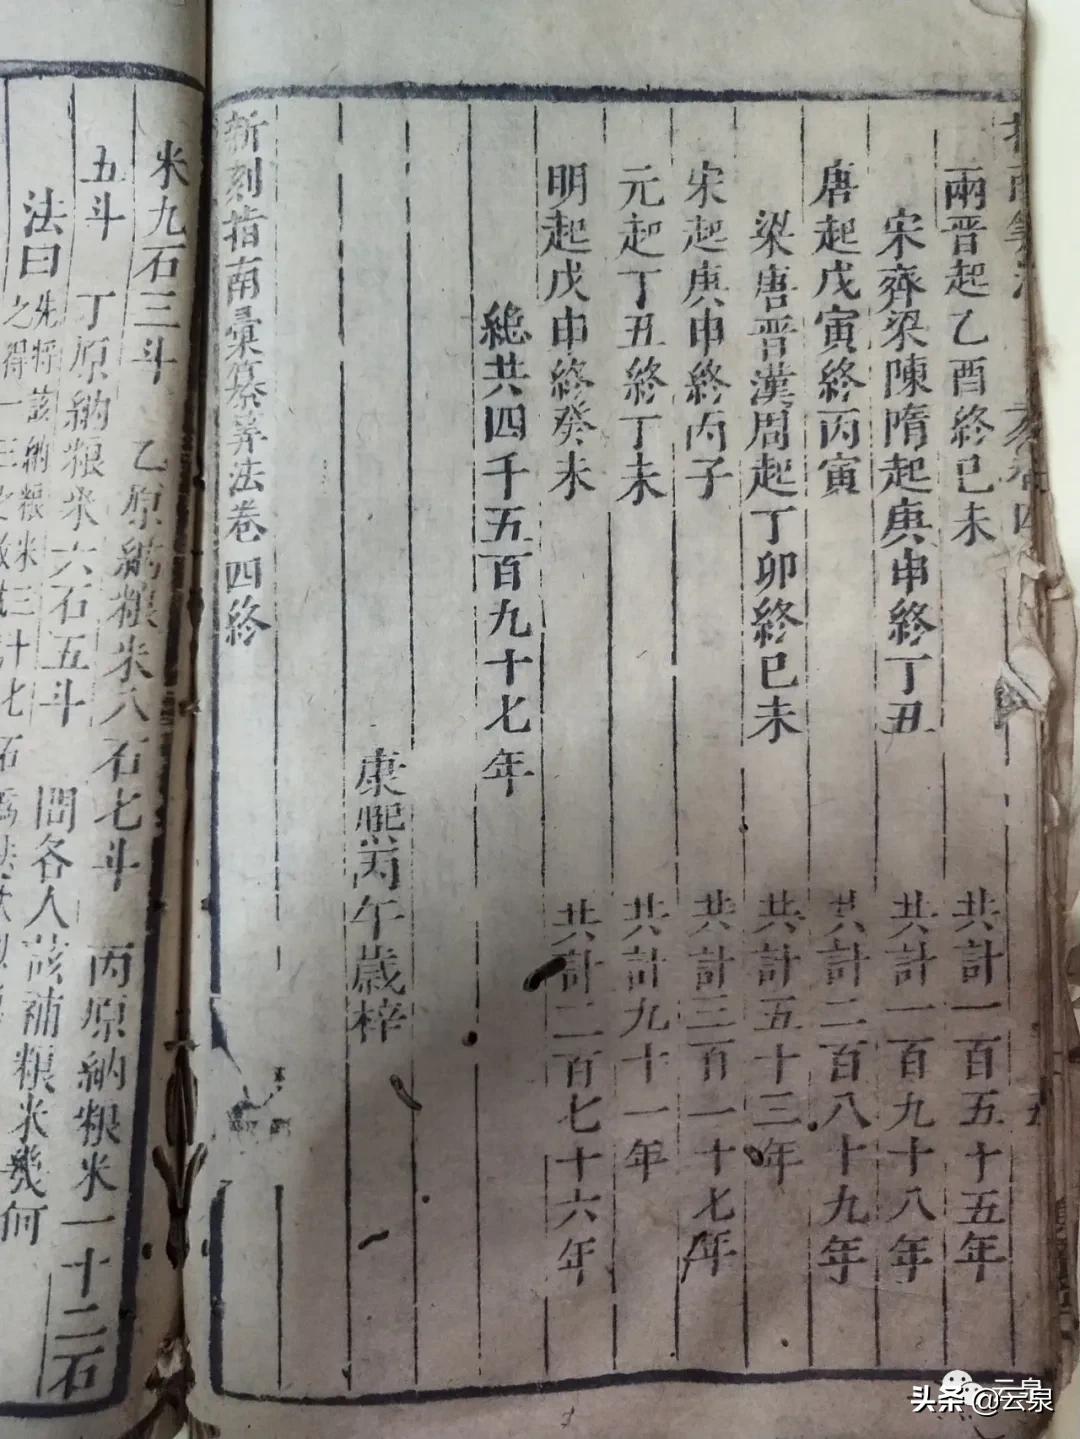 兩晋起乙酉終已未 共計一百五十五年
宋齊梁陳隋起庚申終丁丑 共計一百九十八年
唐起戊寅終丙寅 共計二百八十九年
梁唐晋漢周起丁卯終已未 共計五十三年
宋起庚申終丙子 共計三百一十七年
元起丁丑終丁未 共計九十一年
明起戊申終癸未 共計二百七十六年
緫共四千五百九十七年
康熙丙午歲梓
新刻指南彙纂筭法卷四終
米九石三斗 乙原納粮米八石七斗 丙原納粮米一十二石
五斗 丁原納粮米六石五斗 問各人該補粮米幾何
法曰先將該納粮米三十七石爲法
之得一三
头条 @云泉
云泉